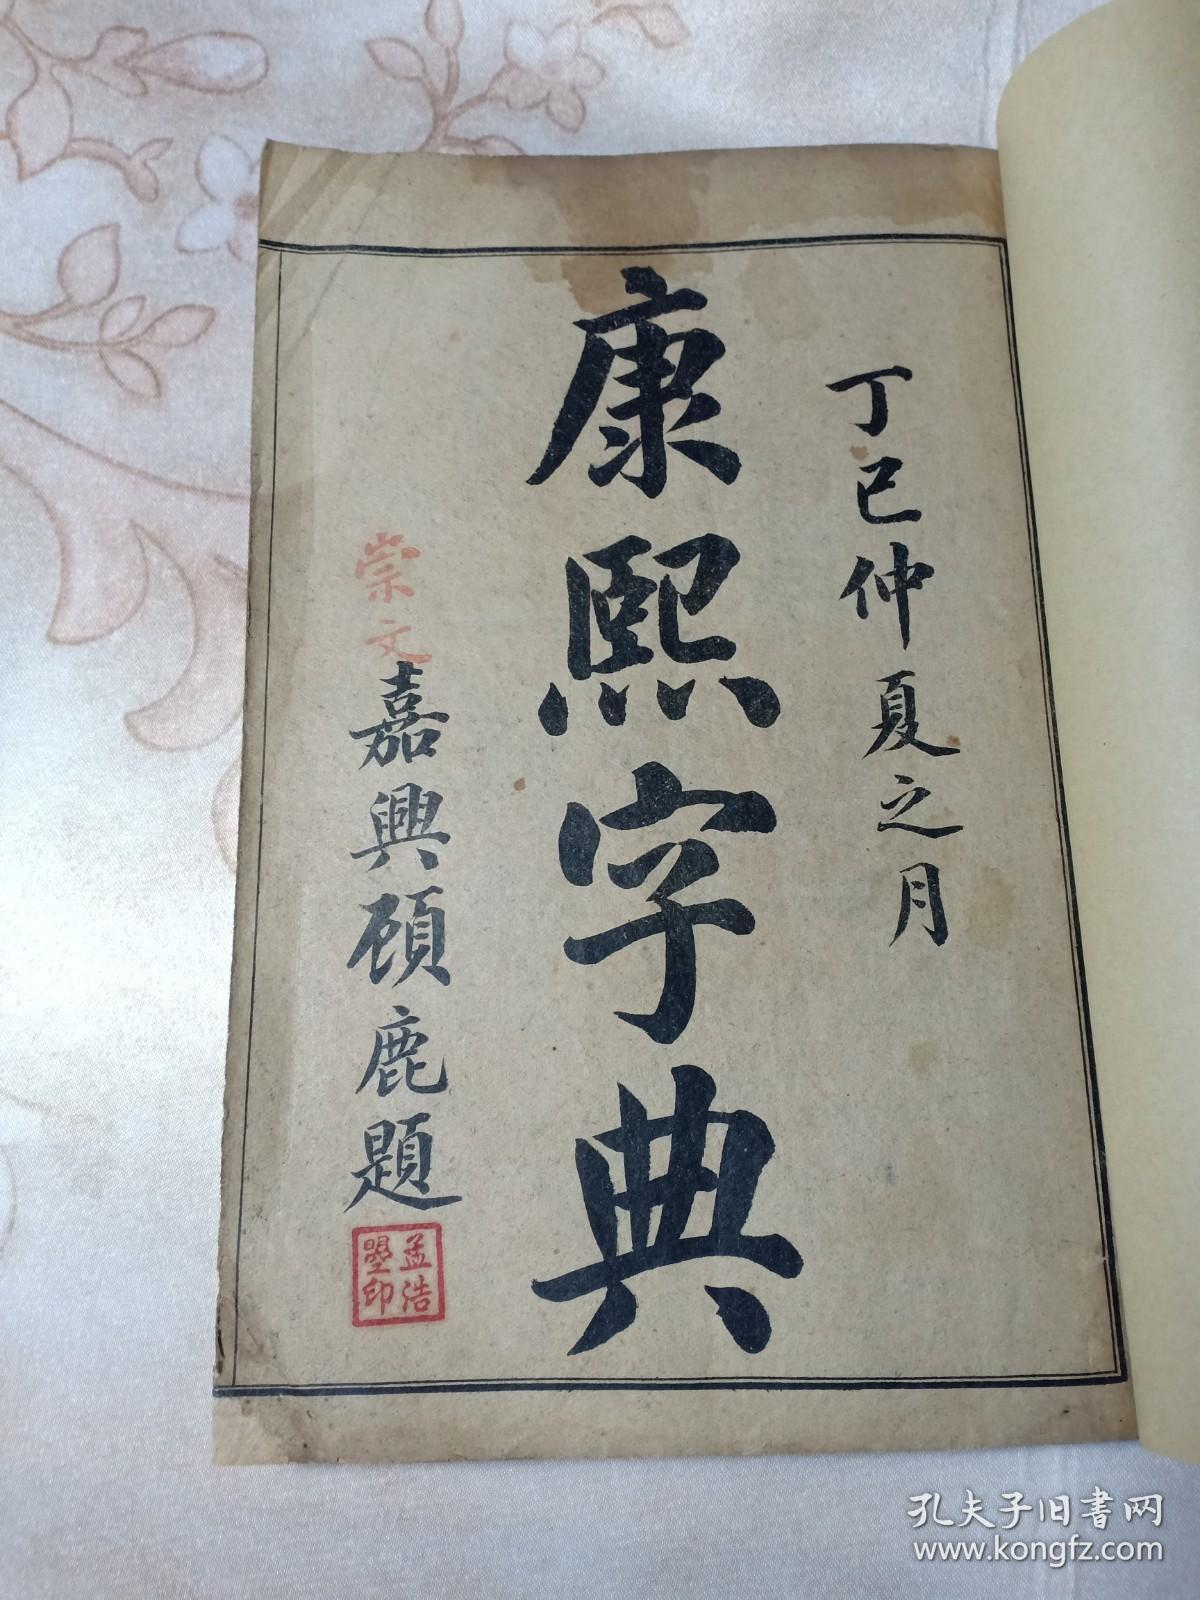 丁巳仲夏之月
康熙字典
崇文
嘉興顾鹿題
孟浩
印
孔夫子旧书网
www.kongfz.com